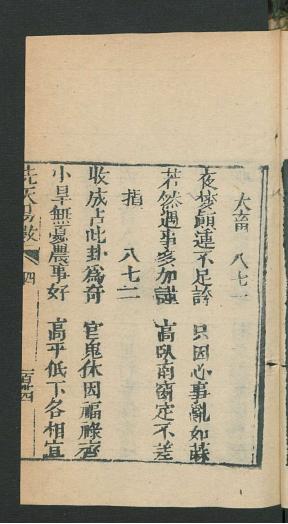 大畜 八七一
夜夢顛連不足誇 只因心事亂如蔴
若然遇事多加謹 高臥南窗定不差
指 八七二
收成占此卦為奇 官鬼休囚福祿齊
小旱無憂農事好 高平低下各相宜
先天易數 四 百廿四